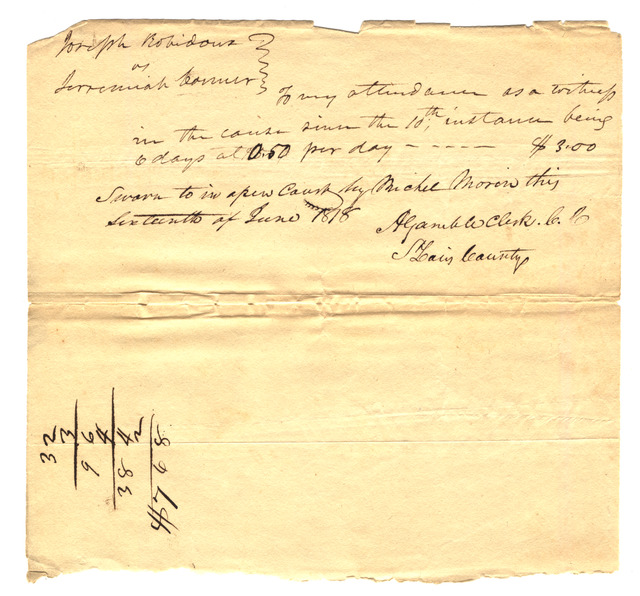 Joseph Robidoux
vs
Jeremiah Connor
To my attendance as a witness
in the cause since the 10th, instance being
6 days at 0.50 per day - - - - - $3.00
Sworn to in open Court by Michel Morin this
Sixteenth of June 1818
A Gamble Clerk. C. C
St Louis County
32
3
96
4
384
2
$768